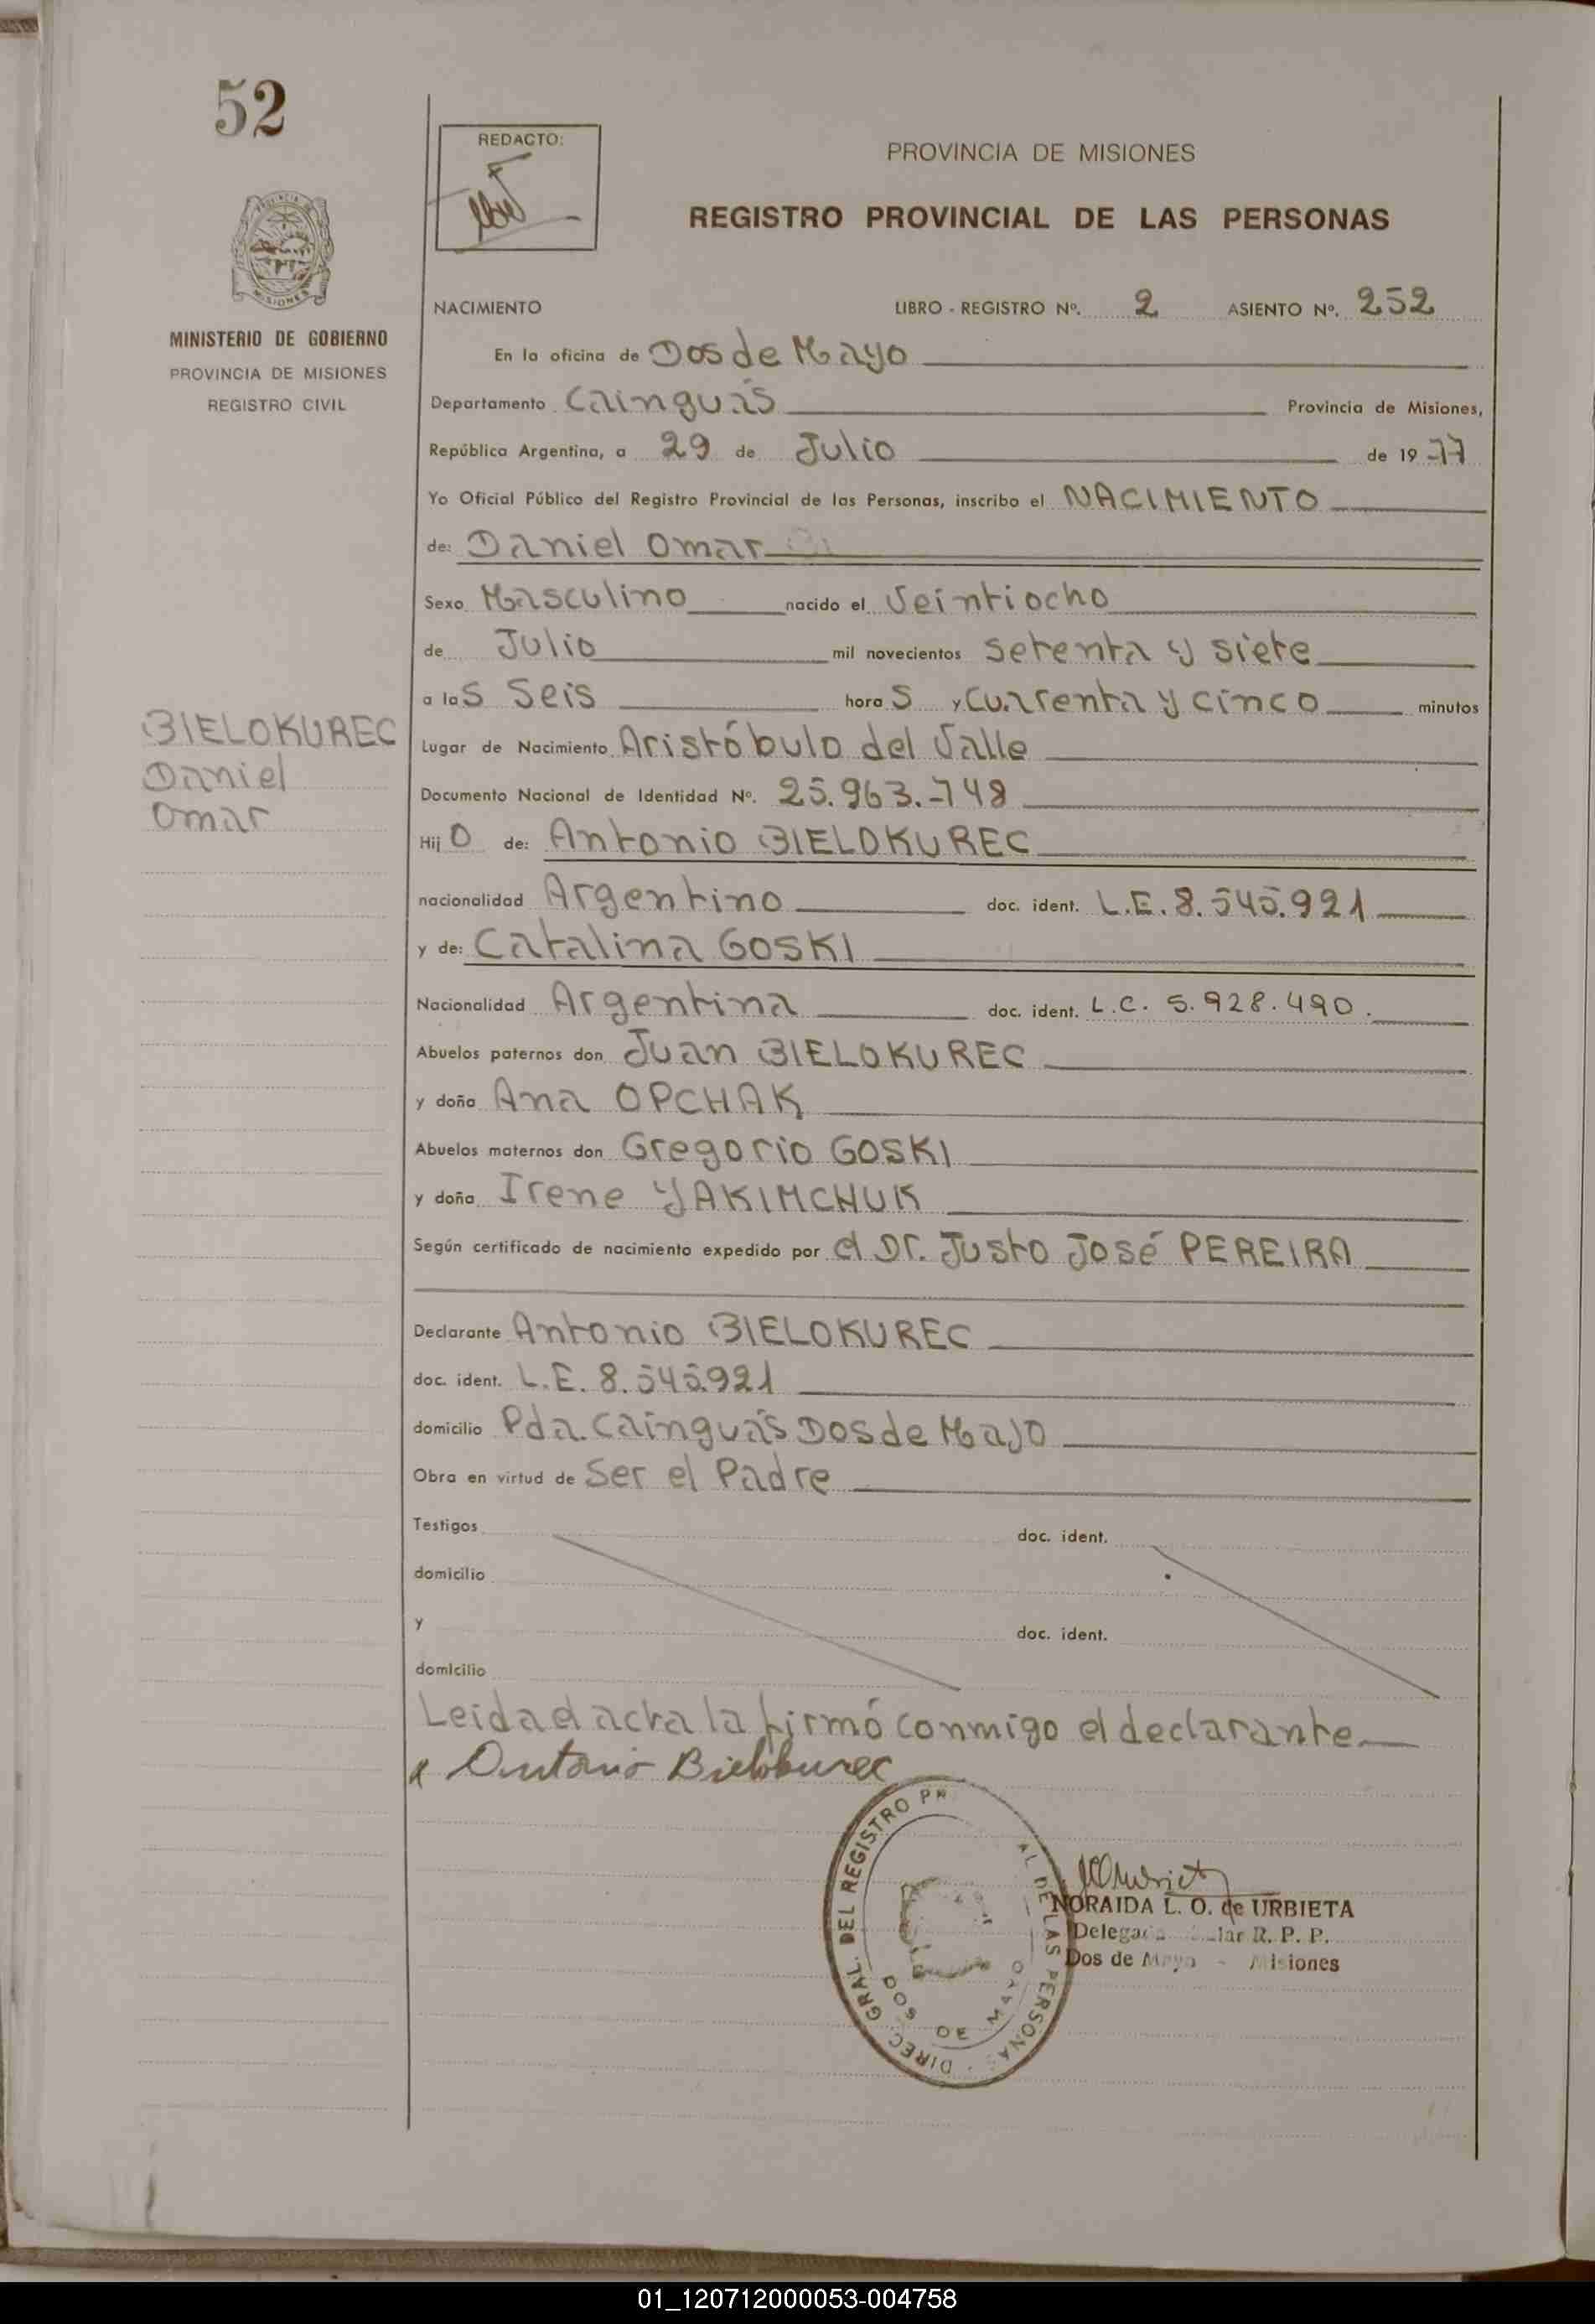 52
REDACTO:
PROVINCIA DE MISIONES
REGISTRO PROVINCIAL DE LAS PERSONAS
MINISTERIO DE GOBIERNO
PROVINCIA DE MISIONES
REGISTRO CIVIL
NACIMIENTO LIBRO - REGISTRO Nº. 2 ASIENTO Nº. 252
En la oficina de Dos de Mayo
Departamento Cainguás Provincia de Misiones,
República Argentina, a 29 de Julio de 1977
Yo Oficial Público del Registro Provincial de las Personas, inscribo el NACIMIENTO
de: Daniel Omar
Sexo Masculino nacido el Veintiocho
de Julio mil novecientos setenta y siete
a las Seis horas y Cuarenta y cinco minutos
BIELOKUREC
Daniel
Omar
Lugar de Nacimiento Aristóbulo del Valle
Documento Nacional de Identidad Nº. 25.963.748
Hijo de: Antonio BIELOKUREC
nacionalidad Argentino doc. ident. L.E. 8.545.921
y de: Catalina GOSKI
Nacionalidad Argentina doc. ident. L.C. 5.928.490.
Abuelos paternos don Juan BIELOKUREC
y doña Ana OPCHAK
Abuelos maternos don Gregorio GOSKI
y doña Irene YAKIMCHUK
Según certificado de nacimiento expedido por el Dr. Justo José PEREIRA
Declarante Antonio BIELOKUREC
doc. ident. L.E. 8.545.921
domicilio Pda. Cainguás Dos de Mayo
Obra en virtud de Ser el Padre
Testigos doc. ident.
domicilio
y doc. ident.
domicilio
Leida el acta la firmó conmigo el declarante
x Antonio Bielokurec
DIREC. GRAL. DEL REGISTRO PR AL DE LAS PERSONAS
DOS DE MAYO
NORAIDA L. O. de URBIETA
Delegada lar R. P. P.
Dos de Mayo - Misiones
01_120712000053-004758